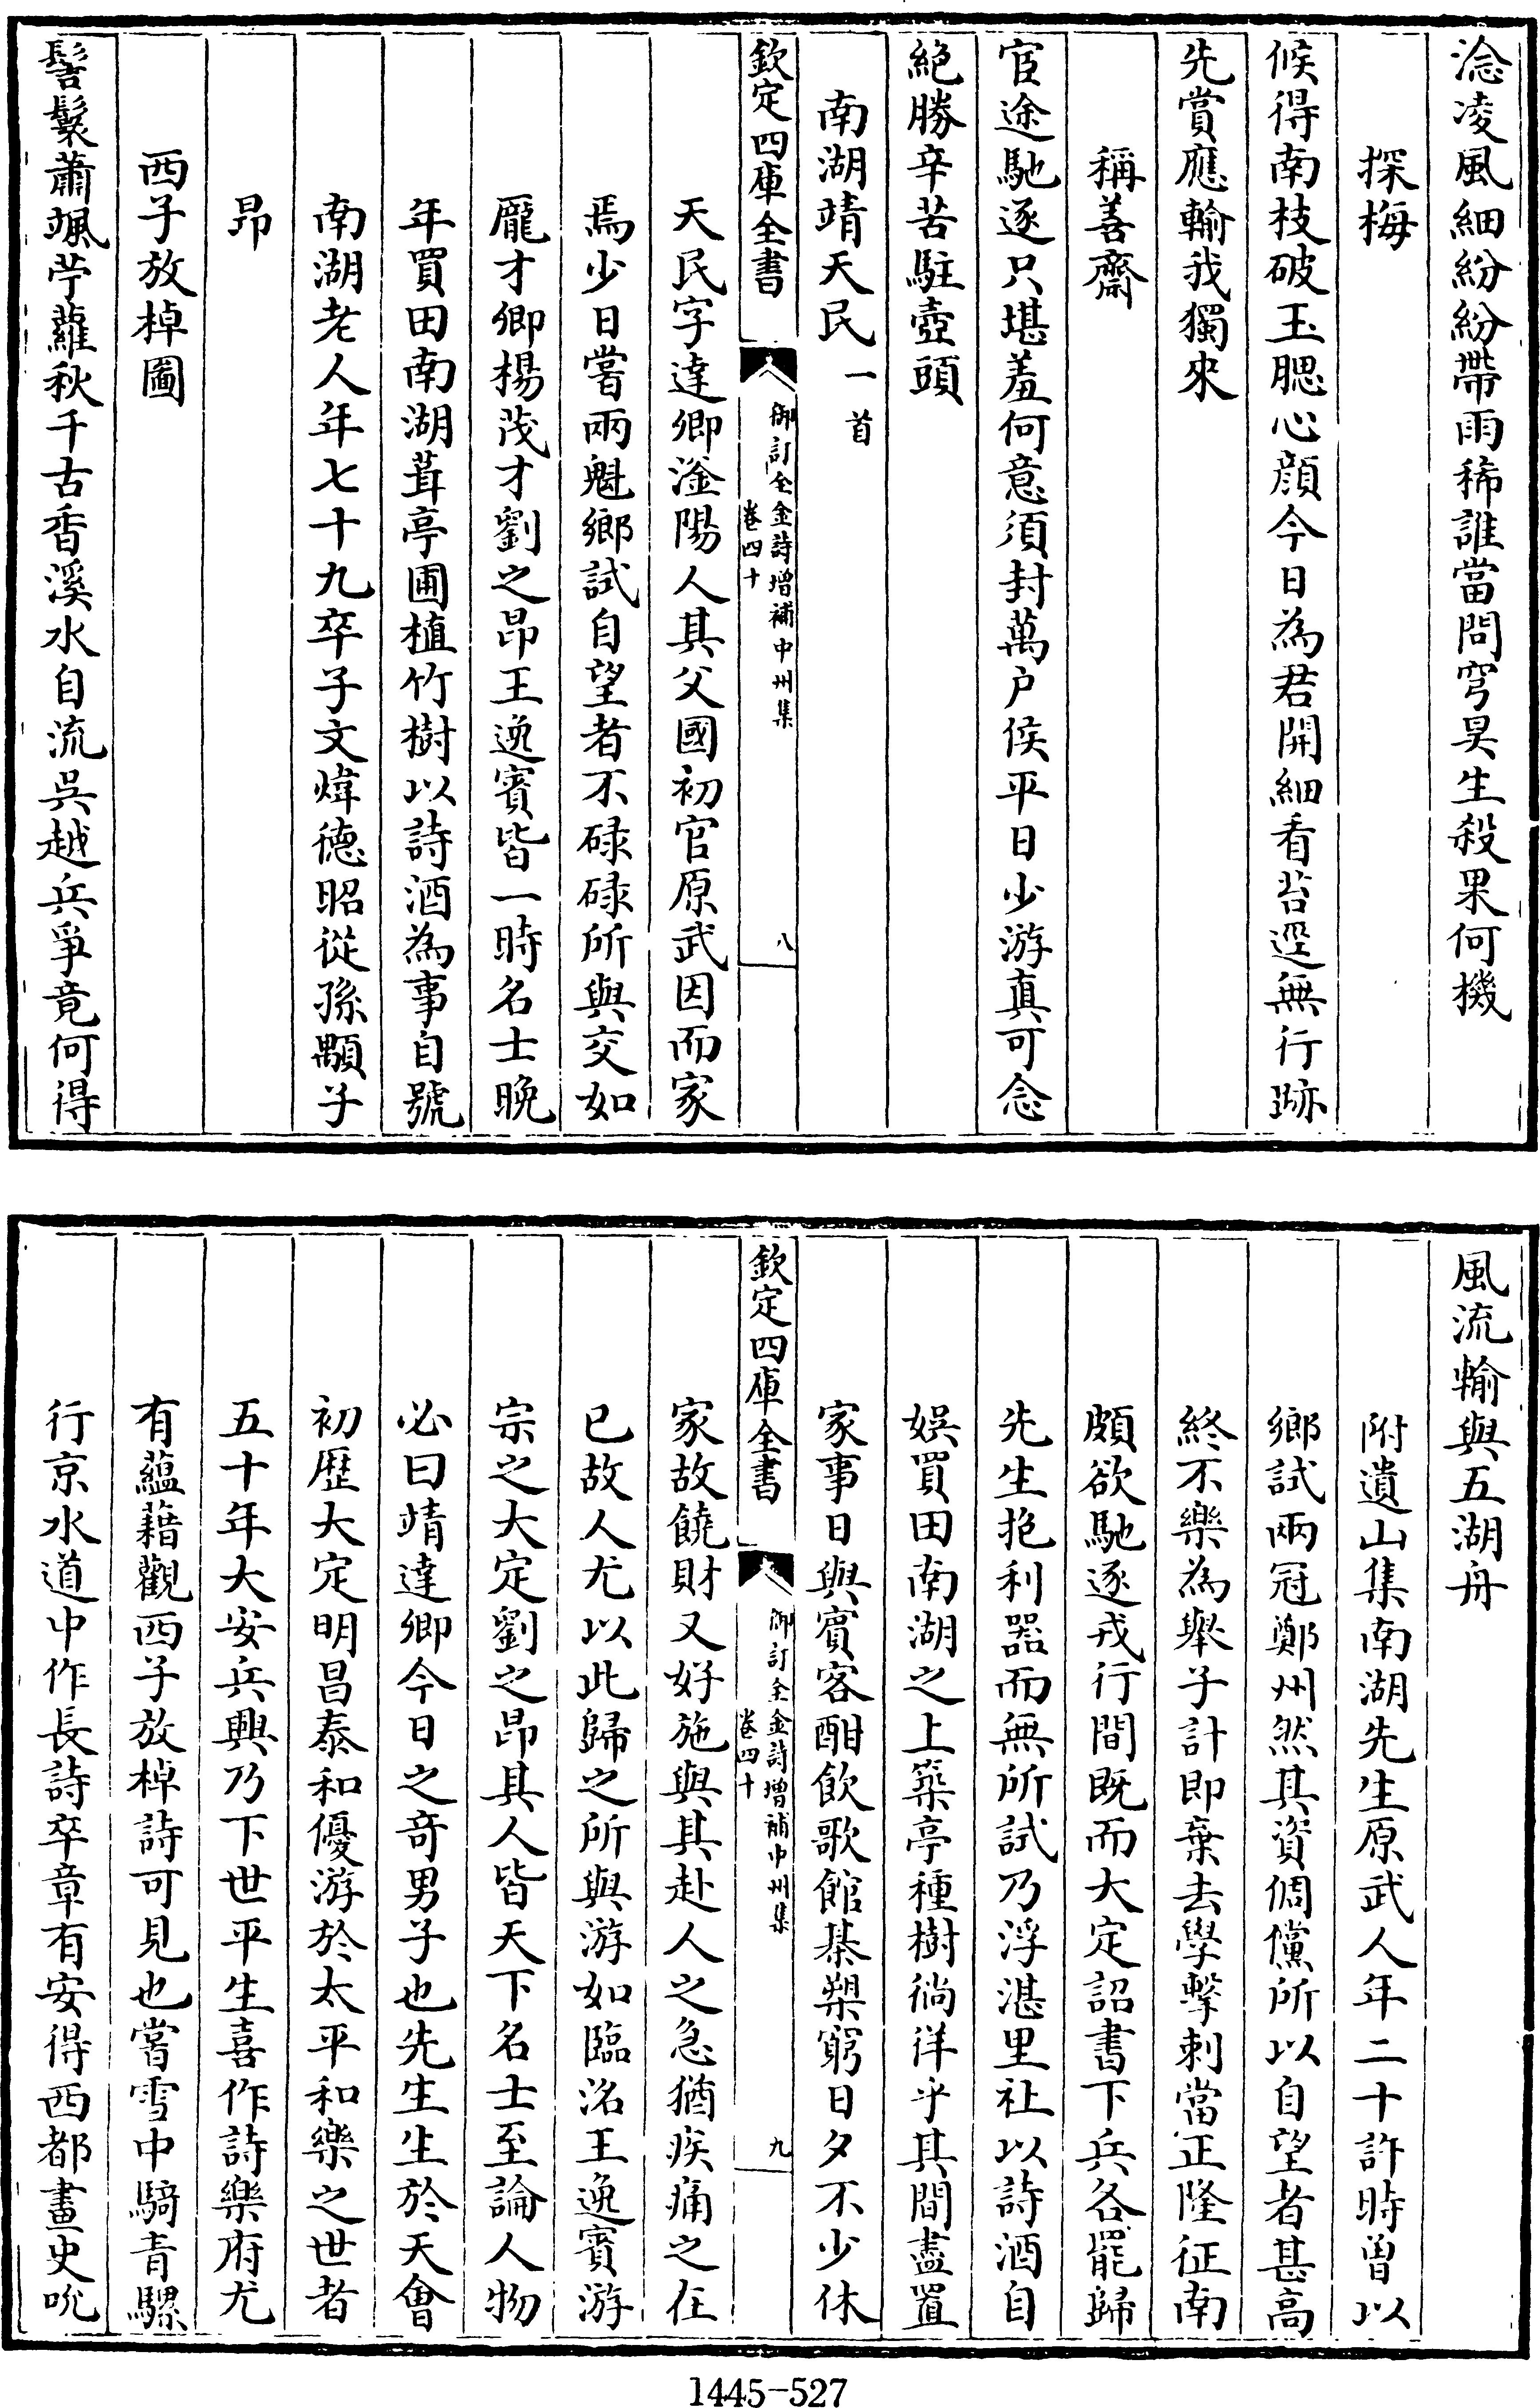 淰凌風細紛紛帶雨稀誰當問穹昊生殺果何機
探梅
候得南枝破玉腮心顔今日為君開細看苔逕無行跡
先賞應輸我獨來
稱善齋
宦途馳逐只堪羞何意須封萬户侯平日少游真可念
絶勝辛苦駐壺頭
南湖靖天民一首
欽定四庫全書
御訂全金詩增補中州集
卷四十
八
天民字達卿滏陽人其父國初官原武因而家
焉少日嘗兩魁鄉試自望者不碌碌所與交如
龐才卿楊茂才劉之昂王逸賓皆一時名士晩
年買田南湖葺亭圃植竹樹以詩酒為事自號
南湖老人年七十九卒子文煒德昭從孫顒子
昂
西子放棹圖
髻鬟蕭颯苧蘿秋千古香溪水自流吳越兵爭竟何得
風流輸與五湖舟
附遺山集南湖先生原武人年二十許時曽以
鄉試兩冠鄭州然其資倜儻所以自望者甚高
終不樂為舉子計即棄去學擊刺當正隆征南
頗欲馳逐戎行間既而大定詔書下兵各罷歸
先生抱利器而無所試乃浮湛里社以詩酒自
娛買田南湖之上築亭種樹徜徉乎其間盡置
家事日與賓客酣飲歌館棊槊窮日夕不少休
欽定四庫全書
御訂全金詩增補中州集
卷四十
九
家故饒財又好施與其赴人之急猶疾痛之在
已故人尤以此歸之所與游如臨洺王逸賓游
宗之大定劉之昂其人皆天下名士至論人物
必曰靖達卿今日之奇男子也先生生於天會
初歴大定明昌泰和優游於太平和樂之世者
五十年大安兵興乃下世平生喜作詩樂府尤
有蘊藉觀西子放棹詩可見也嘗雪中騎青騾
行京水道中作長詩卒章有安得西都畫史吮
1445-527